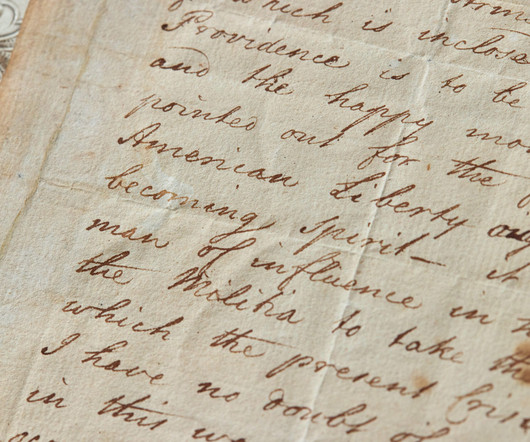 which is inclose
Providence is to be
and the happy mo
pointed out for the
American Liberty oug
becoming spirit – it
man of influence in
the Militia to take th
which the present Cris
I have no doubt of
in this wa